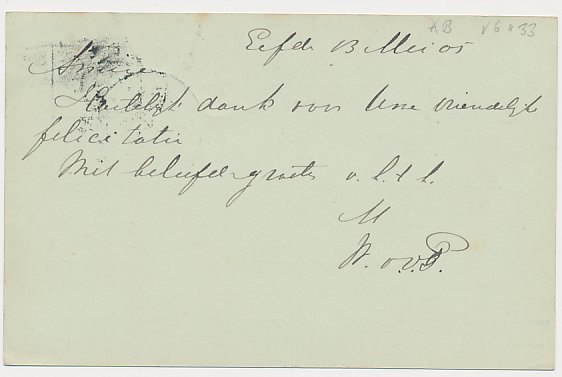 AB VG 33
Eefde 13 Mei 05
Hartelijk dank voor Uwe vriendelijke
felicitatie
Met beleefde groeten v. h. t. h.
M
W. v. P.